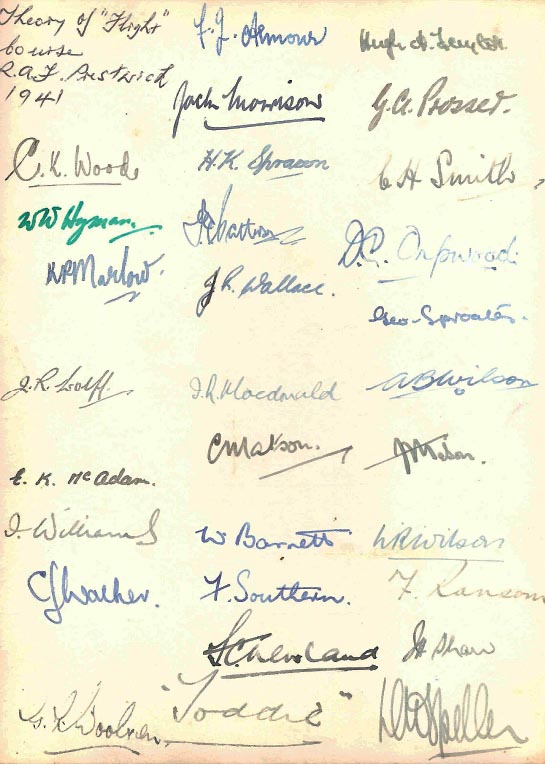 Theory of "Flight"
Course
R.A.F. Prestwich
1941
F. J. Armour
Hugh A. Taylor
Jack Morrison
G. A. Prosser.
C. K. Wood
H. K. Spracon
C H Smith
W W Hyman.
D. G. Orpwood.
K P Marlow.
J R. Wallace.
Geo. Sproates.
J. R.
J. R. Macdonald
A B Wilson
C Matson.
E. K. McAdam.
J. Williams
W Barnett
W R Wilson
C J Walker.
F. Southern.
F. Ransom
Cleveland
H Shaw
"Toddie"